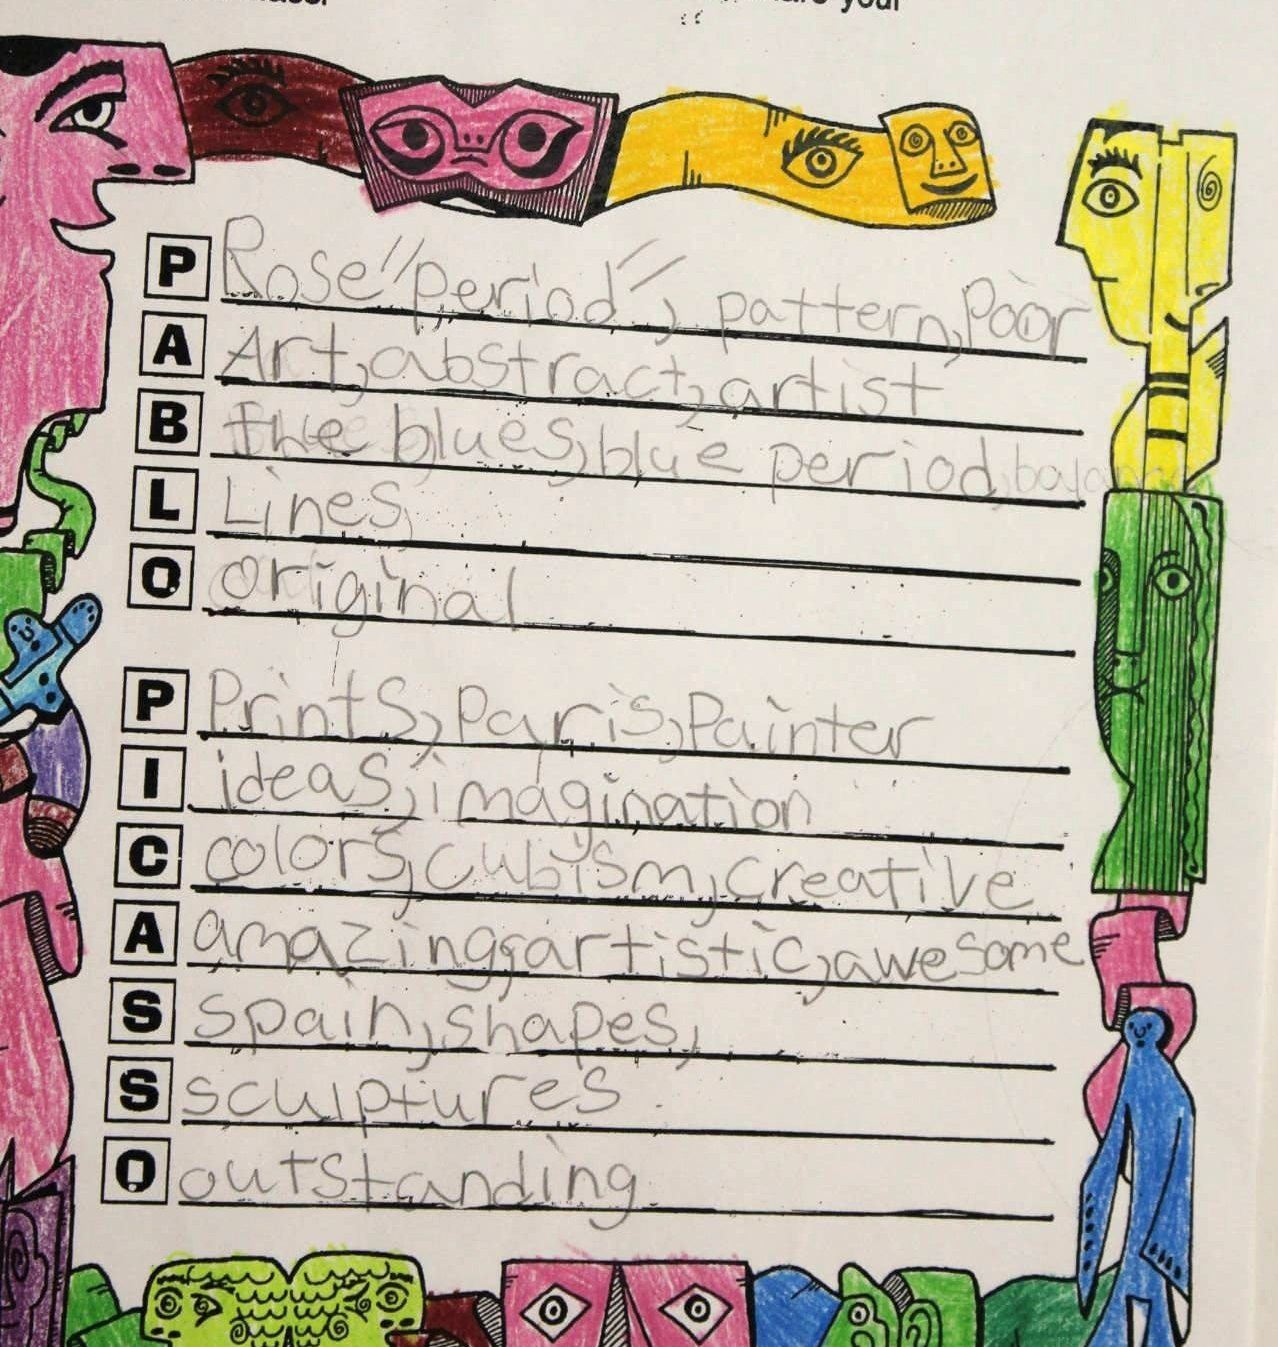 your
P Rose "period", pattern, Poor
A Art, abstract, artist
B the blues, blue period,
L Lines,
O original
P Prints, Paris, Painter
I ideas, imagination
C colors, cubism, creative
A amazing, artistic, awesome
S spain, shapes,
S sculptures
O outstanding